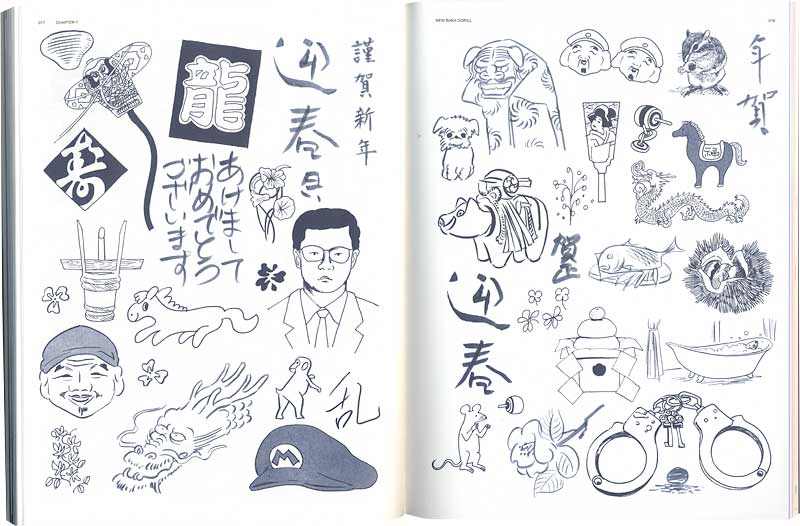 CHAPTER 7
龍
迎春
謹賀新年
寿
あけまして
おめでとう
ございます
乱
M
年賀
福
賀正
迎春